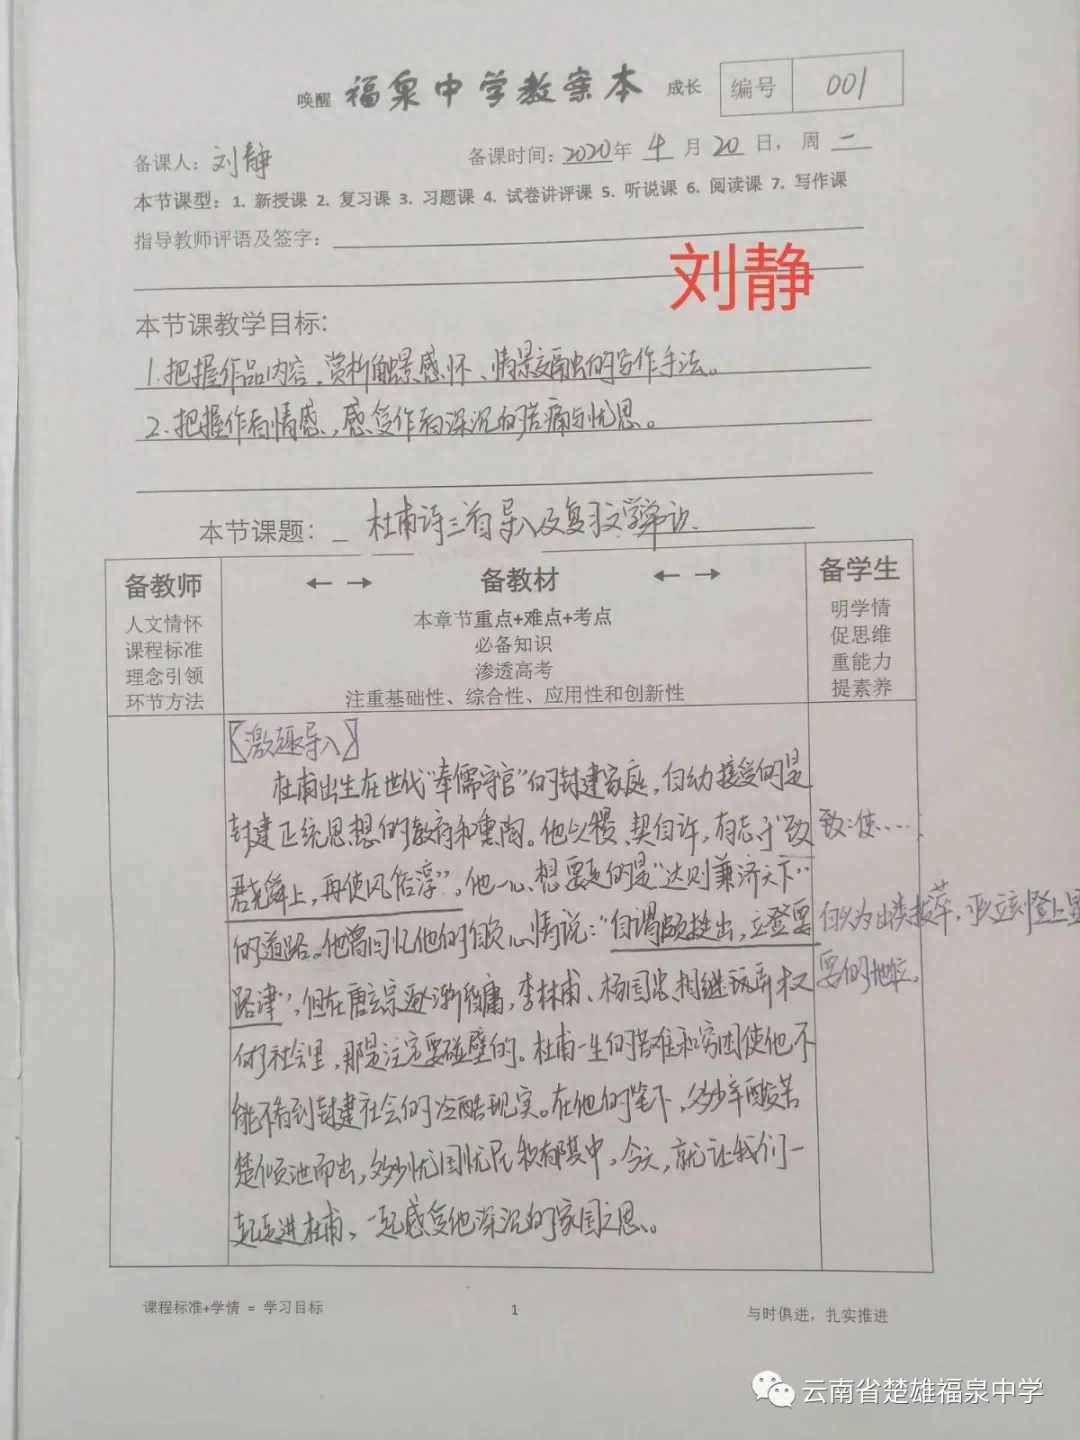 唤醒 福泉中学教案本 成长 编号 001
备课人：刘静 备课时间：2020年 4 月 20 日，周 二
本节课型：1. 新授课 2. 复习课 3. 习题课 4. 试卷讲评课 5. 听说课 6. 阅读课 7. 写作课
指导教师评语及签字：
刘静
本节课教学目标：
1.把握作品内容，赏析触景感怀、情景交融的写作手法。
2.把握作者情感，感受作者深沉的苦痛与忧思。
本节课题： 杜甫诗三首导入及复习文学常识
备教师
人文情怀
课程标准
理念引领
环节方法
← → 备教材 ← →
本章节重点+难点+考点
必备知识
渗透高考
注重基础性、综合性、应用性和创新性
备学生
明学情
促思维
重能力
提素养
【激趣导入】
杜甫出生在世代“奉儒守官”的封建家庭，自幼接受的是
封建正统思想的教育和熏陶。他以稷、契自许，有志于“致
君尧舜上，再使风俗淳”。他一心想要走的是“达则兼济天下”
的道路。他曾回忆他的自负心情说：“自谓颇挺出，立登要
路津”，但在唐玄宗逐渐昏庸，李林甫、杨国忠相继玩弄权
的社会里，那是注定要碰壁的。杜甫一生的苦难和穷困使他不
能不看到封建社会的冷酷现实。在他的笔下，多少辛酸苦
楚倾泄而出，多少忧国忧民积郁其中，今天，就让我们一
起走进杜甫，一起感受他深沉的家国之思。
致：使……
自以为出类拔萃，可以立刻登上显
要的地位。
课程标准+学情 = 学习目标 1 与时俱进，扎实推进
云南省楚雄福泉中学